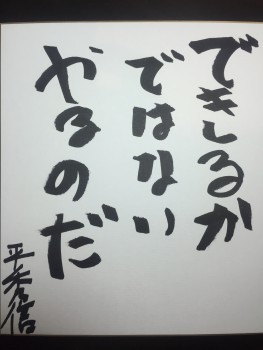 できるか
ではない
やるのだ